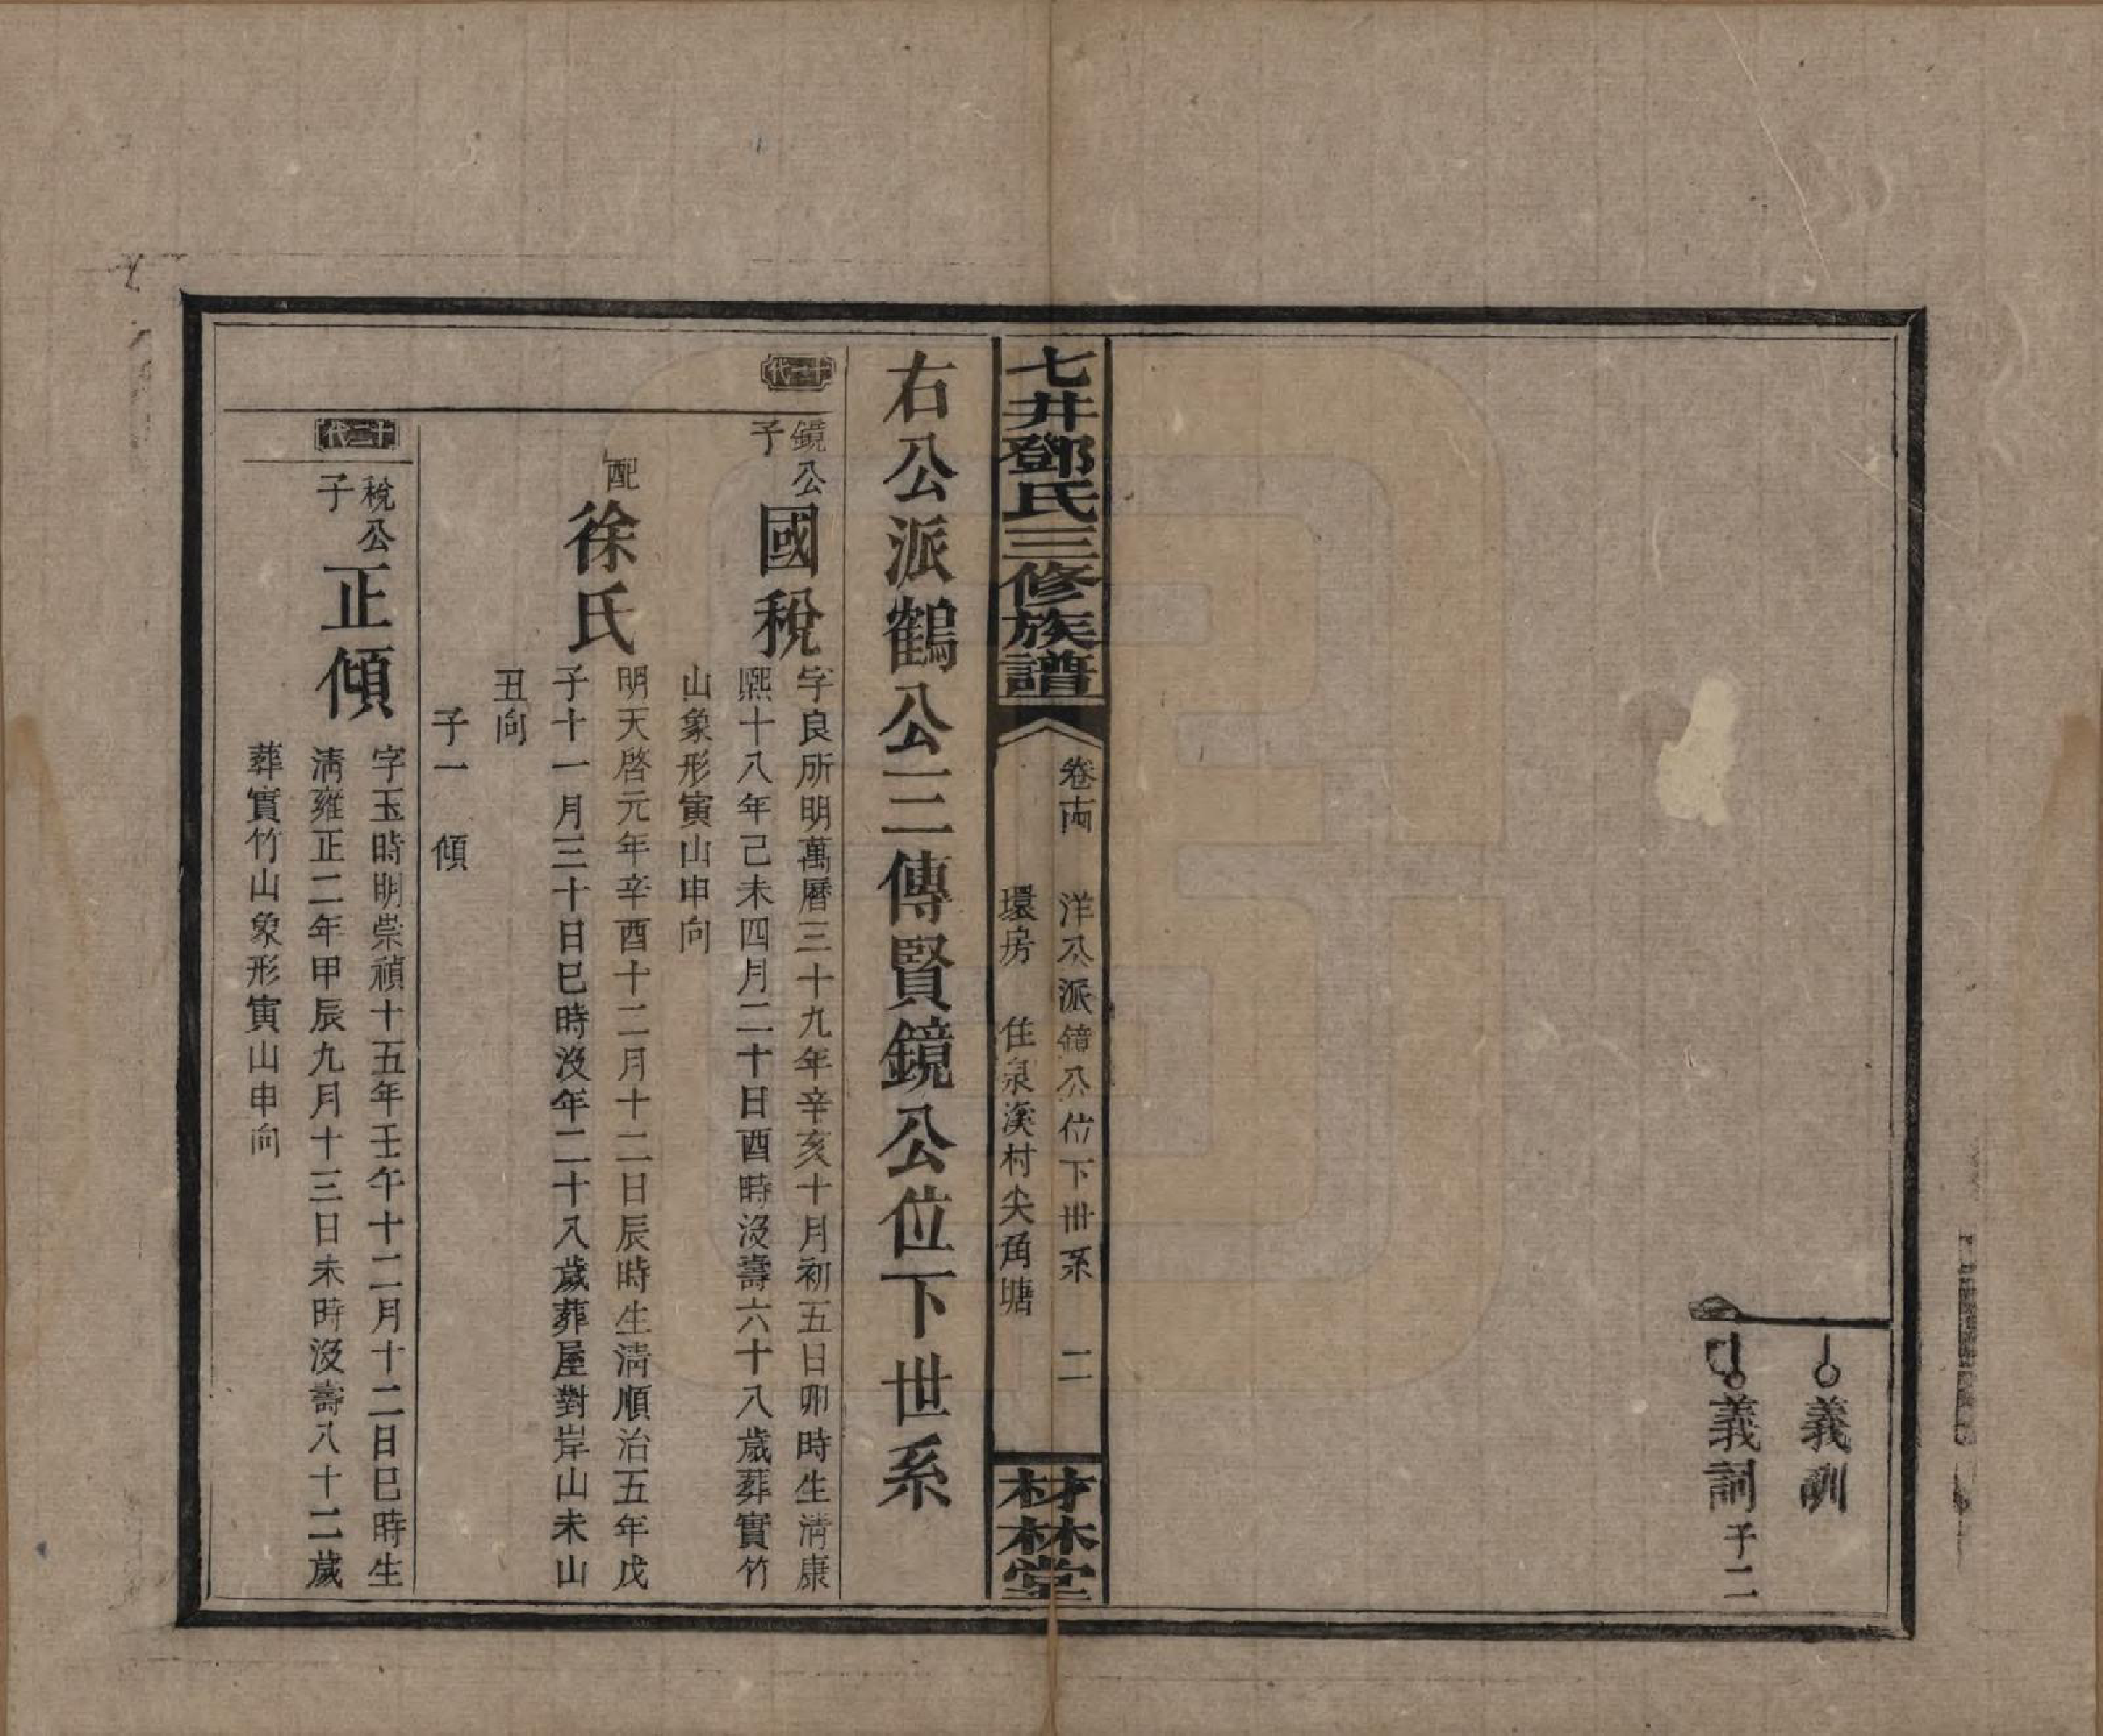 義訓
義詞 子二
七井鄧氏三修族譜
卷十四 洋公派鏡公位下世系 二
環房 住泉溪村尖角塘
材林堂
右公派鶴公三傳賢鏡公位下世系
十一代
鏡公子 國稅
字良所明萬曆三十九年辛亥十月初五日卯時生清康
熙十八年己未四月二十日酉時沒壽六十八歲葬實竹
山象形寅山申向
配 徐氏
明天啓元年辛酉十二月十二日辰時生清順治五年戊
子十一月三十日巳時沒年二十八歲葬屋對岸山未山
丑向
子一 傾
十二代
稅公子 正傾
字玉時明崇禎十五年壬午十二月十二日巳時生
清雍正二年甲辰九月十三日未時沒壽八十二歲
葬實竹山象形寅山申向